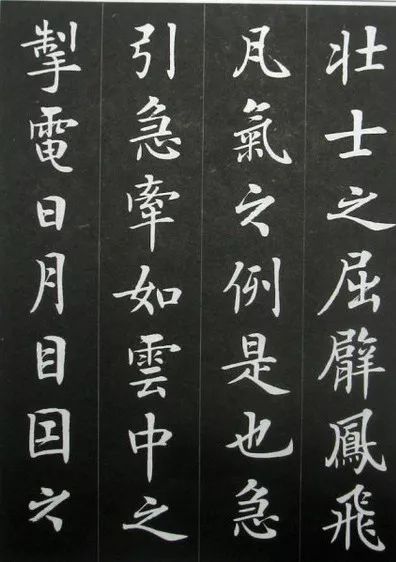 壮士之屈臂鳳飛
凡氣之例是也急
引急牽如雲中之
掣電日月目因之